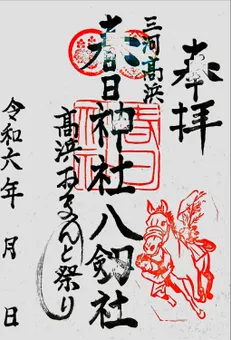 奉拝
三河高浜
春日神社八剱社
高浜おまんと祭り
令和六年 月 日
春日